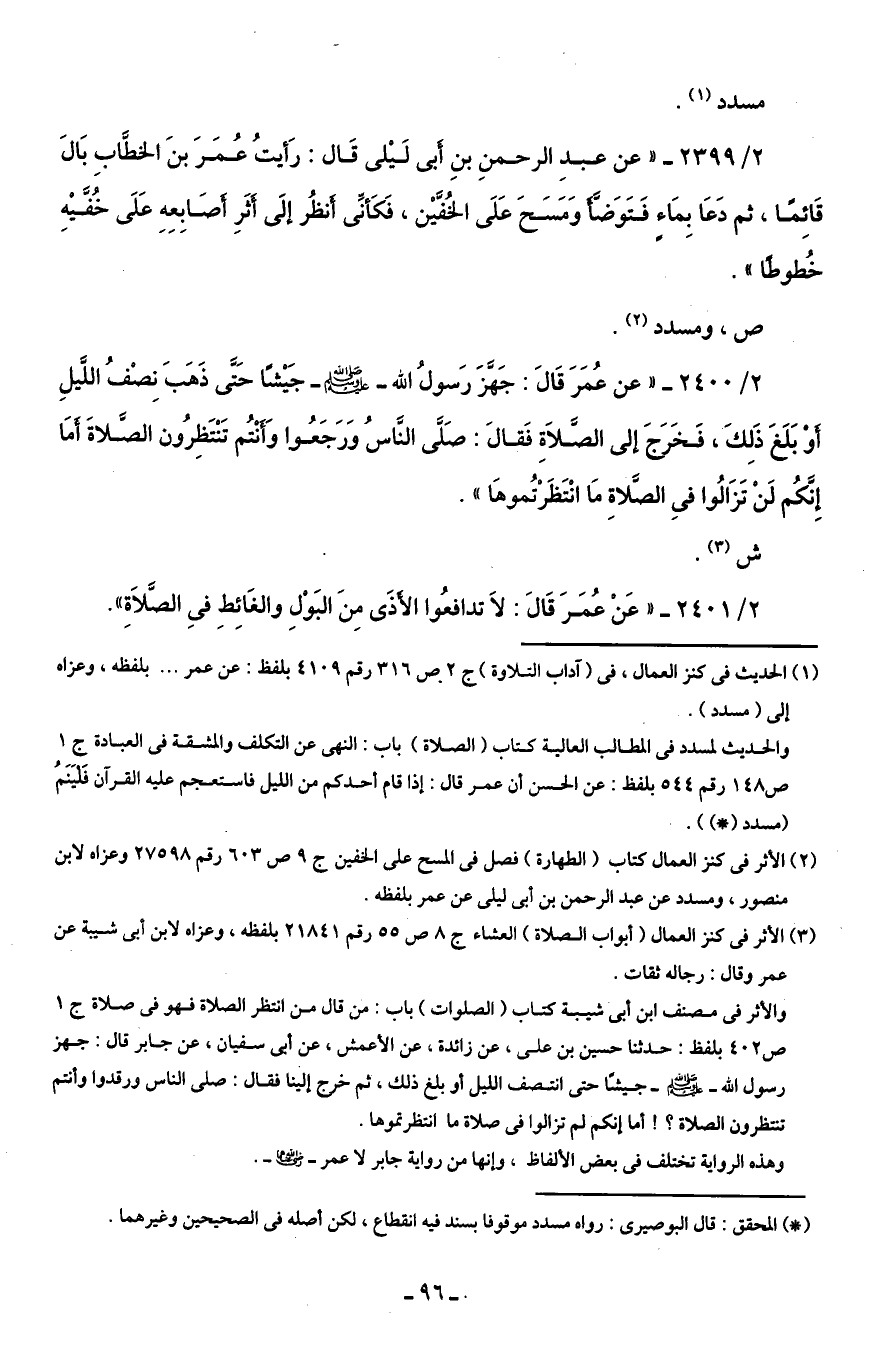 مسدد (١) .
٢/ ٢٣٩٩ ـ « عن عبدِ الرحمنِ بنِ أَبى لَيْلى قَال : رَأَيتُ عُمَرَ بنَ الخطَّابِ بَالَ
قَائِمًا ، ثم دَعَا بِمَاءٍ فَتَوَضَّأَ وَمَسَحَ عَلَى الخُفَّيْن ، فَكَأَنِّى أَنظُر إلَى أَثَرِ أَصَابِعِهِ عَلَى خُفَّيْهِ
خُطوطًا » .
ص ، ومسدد (٢) .
٢/ ٢٤٠٠ ـ « عن عُمَرَ قَالَ : جَهَّزَ رَسولُ الله ـ ﷺ ـ جَيْشًا حَتَّى ذَهَبَ نِصْفُ اللَّيلِ
أَوْ بَلَغَ ذَلِكَ ، فَخَرَجَ إلى الصَّلاَةِ فَقَالَ : صَلَّى النَّاسُ وَرَجَعُوا وَأَنْتُم تَنْتَظِرُون الصَّلاةَ أَمَا
إِنَّكُم لَنْ تَزَالُوا فى الصَّلاةِ مَا انْتَظَرْتُموهَا » .
ش (٣) .
٢/ ٢٤٠١ ـ « عَنْ عُمَرَ قَالَ : لاَ تدافعُوا الأَذَى مِنَ البَوْلِ والغَائِط فىِ الصَّلاَةِ».
(١) الحديث فى كنز العمال ، فى ( آداب التلاوة ) ج ٢ ص ٣١٦ رقم ٤١٠٩ بلفظ : عن عمر ... بلفظه ، وعزاه
إلى ( مسدد ) .
والحديث لمسدد فى المطالب العالية كتاب ( الصلاة ) باب : النهى عن التكلف والمشقة فى العبادة ج ١
ص١٤٨ رقم ٥٤٤ بلفظ : عن الحسن أن عمر قال : إذا قام أحدكم من الليل فاستعجم عليه القرآن فَلْيَنَمْ
(مسدد (*) ) .
(٢) الأثر فى كنز العمال كتاب ( الطهارة ) فصل فى المسح على الخفين ج ٩ ص ٦٠٣ رقم ٢٧٥٩٨ وعزاه لابن
منصور ، ومسدد عن عبد الرحمن بن أبى ليلى عن عمر بلفظه .
(٣) الأثر فى كنز العمال ( أبواب الصلاة ) العشاء ج ٨ ص ٥٥ رقم ٢١٨٤١ بلفظه ، وعزاه لابن أبى شيبة عن
عمر وقال : رجاله ثقات .
والأثر فى مصنف ابن أبى شيبة كتاب ( الصلوات ) باب : من قال من انتظر الصلاة فهو فى صلاة ج ١
ص٤٠٢ بلفظ : حدثنا حسين بن على ، عن زائدة ، عن الأعمش ، عن أبى سفيان ، عن جابر قال : جهز
رسول الله ـ ﷺ ـ جيشًا حتى انتصف الليل أو بلغ ذلك ، ثم خرج إلينا فقال : صلى الناس ورقدوا وأنتم
تنتظرون الصلاة ؟ ! أما إنكم لم تزالوا فى صلاة ما انتظرتموها .
وهذه الرواية تختلف فى بعض الألفاظ ، وإنها من رواية جابر لا عمر ـ رضي الله عنهما ـ .
(*) المحقق : قال البوصيرى : رواه مسدد موقوفا بسند فيه انقطاع ، لكن أصله فى الصحيحين وغيرهما .
ـ ٩٦ ـ